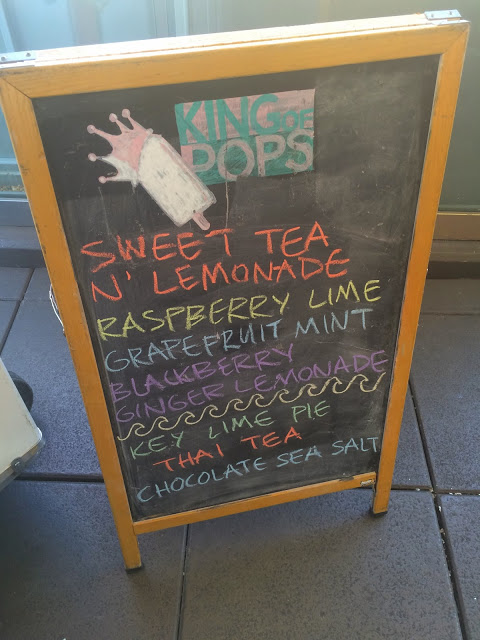 KING OF
POPS
SWEET TEA
N' LEMONADE
RASPBERRY LIME
GRAPEFRUIT MINT
BLACKBERRY
GINGER LEMONADE
KEY LIME PIE
THAI TEA
CHOCOLATE SEA SALT